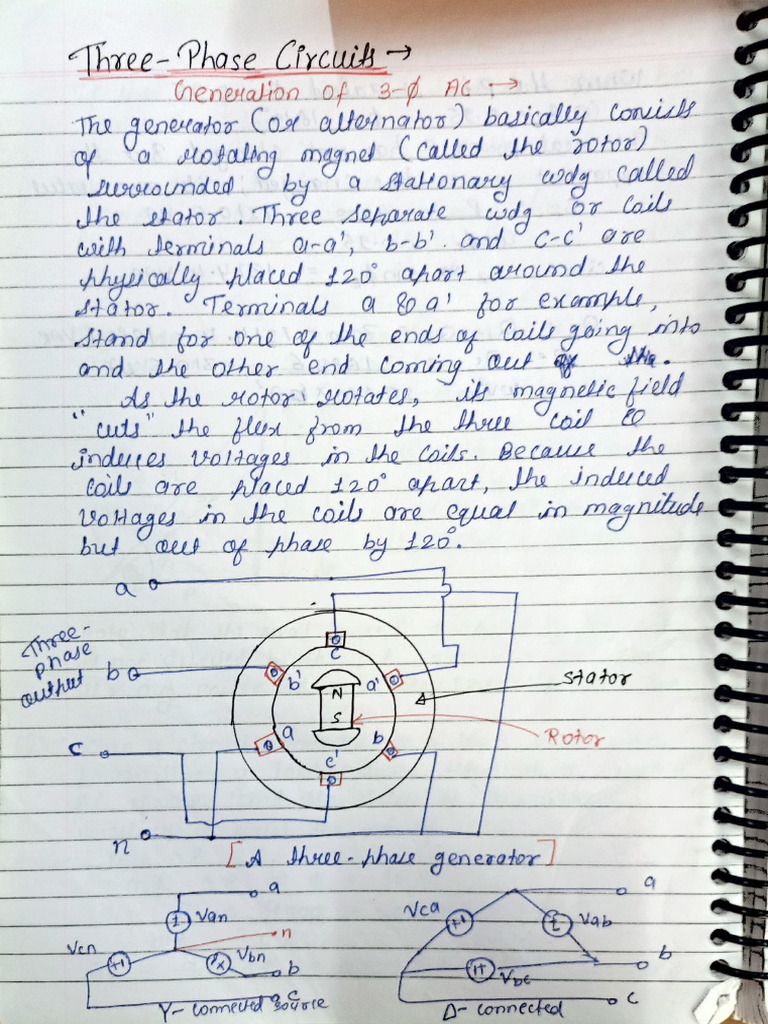 Three-Phase Circuits →
Generation of 3-ϕ AC :→
The generator (or alternator) basically consists
of a rotating magnet (called the rotor)
surrounded by a stationary wdg called
the stator. Three separate wdg or coils
with terminals a-a', b-b' and c-c' are
physically placed 120° apart around the
stator. Terminals a & a' for example,
stand for one of the ends of coils going into
and the other end coming out of the.
As the rotor rotates, its magnetic field
"cuts" the flux from the three coil &
induces voltages in the coils. Because the
coils are placed 120° apart, the induced
voltages in the coils are equal in magnitude
but out of phase by 120°.
a
Three-
phase
output
b
c
n
c
b'
a'
N
S
a
b
c'
stator
Rotor
[A three-phase generator]
a
Van
n
Vcn
Vbn
b
c
Y-connected source
a
Vca
Vab
b
Vbc
c
Δ-connected